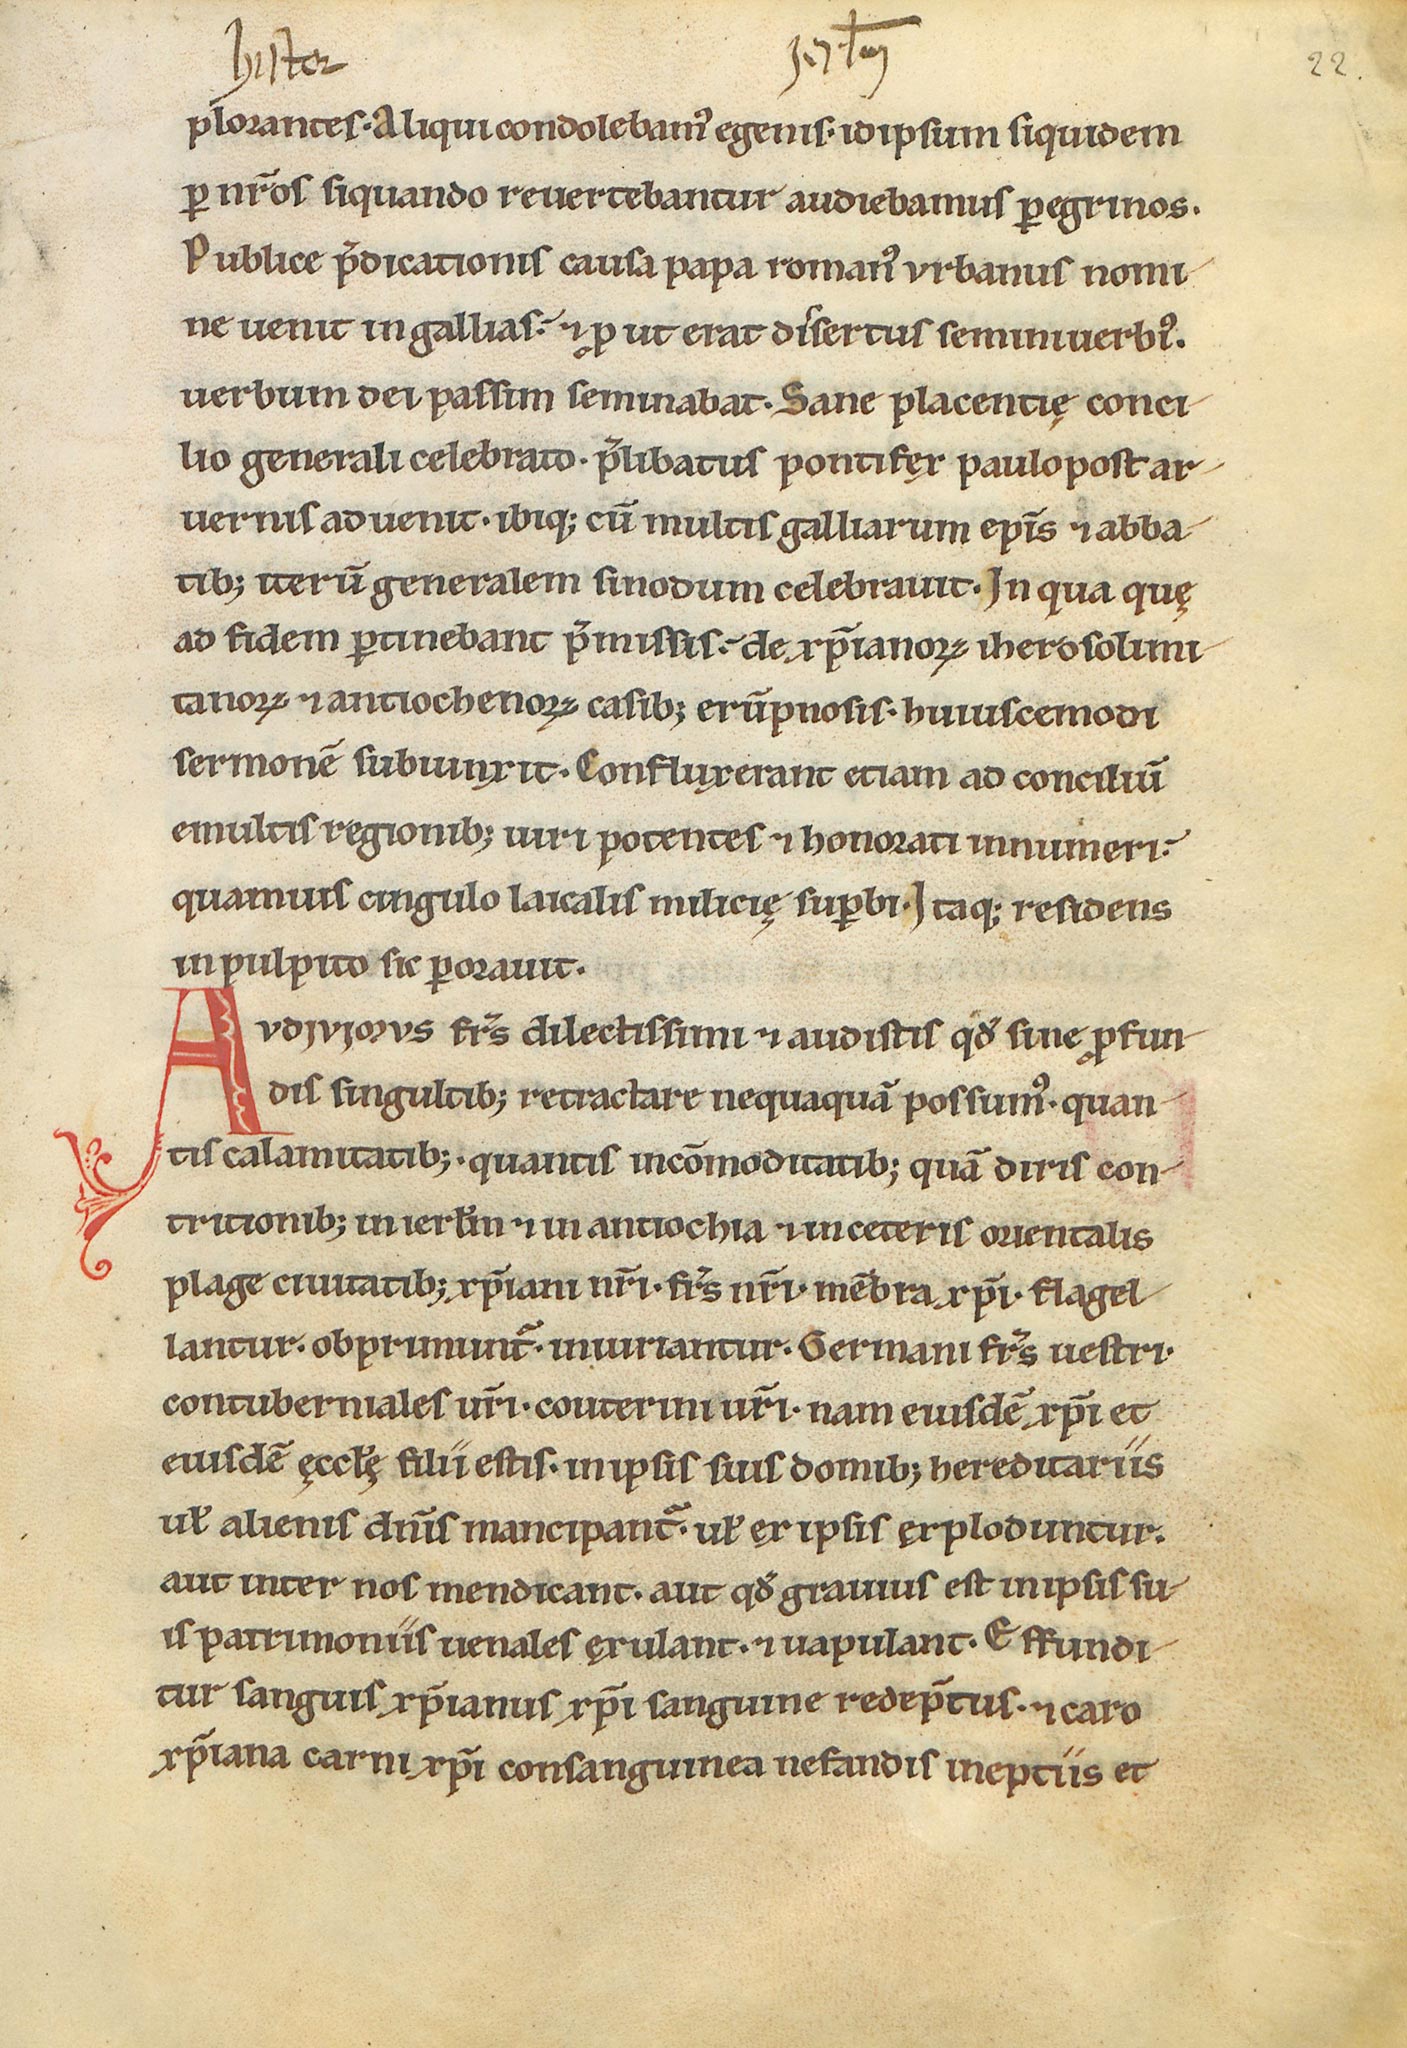 22.
p̄lorantes. Aliqui condolebam᾽ egenis. idipsum siquidem
ꝑ nr̄os siquando reuertebantur audiebamus ꝑegrinos.
Publice p̄dicationis causa papa roman᾽ vrbanus nomi-
ne uenit in gallias. ⁊ ꝓut erat disertus seminiuerbi᾽.
uerbum dei passim seminabat. Sane placentię conci-
lio generali celebrato. p̄libatus pontifęx paulo post ar-
uernis aduenit. ibiq; cū multis galliarum ep̄is ⁊ abba-
tib; iterū generalem sinodum celebrauit. In qua quę
ad fidem ꝑtinebant p̄missis. de xp̄ianoꝝ iherosolimi-
tanoꝝ ⁊ antiochenoꝝ casib; erūpnosis. huiuscemodi
sermonē subiunxit. Confluxerant etiam ad conciliū
e multis regionib; uiri potentes ⁊ honorati innumeri.
quamuis cingulo laicalis milicię suꝑbi. Itaq; residens
in pulpito sic ꝑorauit.
AVDIVIMVS fr̄s dilectissimi ⁊ audistis qđ sine ꝓfun-
dis singultib; retractare nequaquā possum᾽. quan-
tis calamitatib;. quantis incōmoditatib; quā diris con-
tritionib; in ierłm ⁊ in antiochia ⁊ in ceteris orientalis
plage ciuitatib; xp̄iani nr̄i. fr̄s nr̄i. mēbra xp̄i. flagel-
lantur. obprimunt᷑. iniuriantur. Germani fr̄s uestri.
contuberniales ur̄i. couterini ur̄i. nam eiusdē xp̄i et
eiusdē ęccłę filii estis. in ipsis suis domib; hereditariis
uł alienis dn̄is mancipant᷑. uł ex ipsis ęxploduntur.
aut inter nos mendicant. aut qđ grauius est in ipsis su-
is patrimoniis uenales ęxulant. ⁊ uapulant. Effundi-
tur sanguis xp̄ianus xp̄i sanguine redēptus. ⁊ caro
xp̄iana carni xp̄i consanguinea nefandis ineptiis et